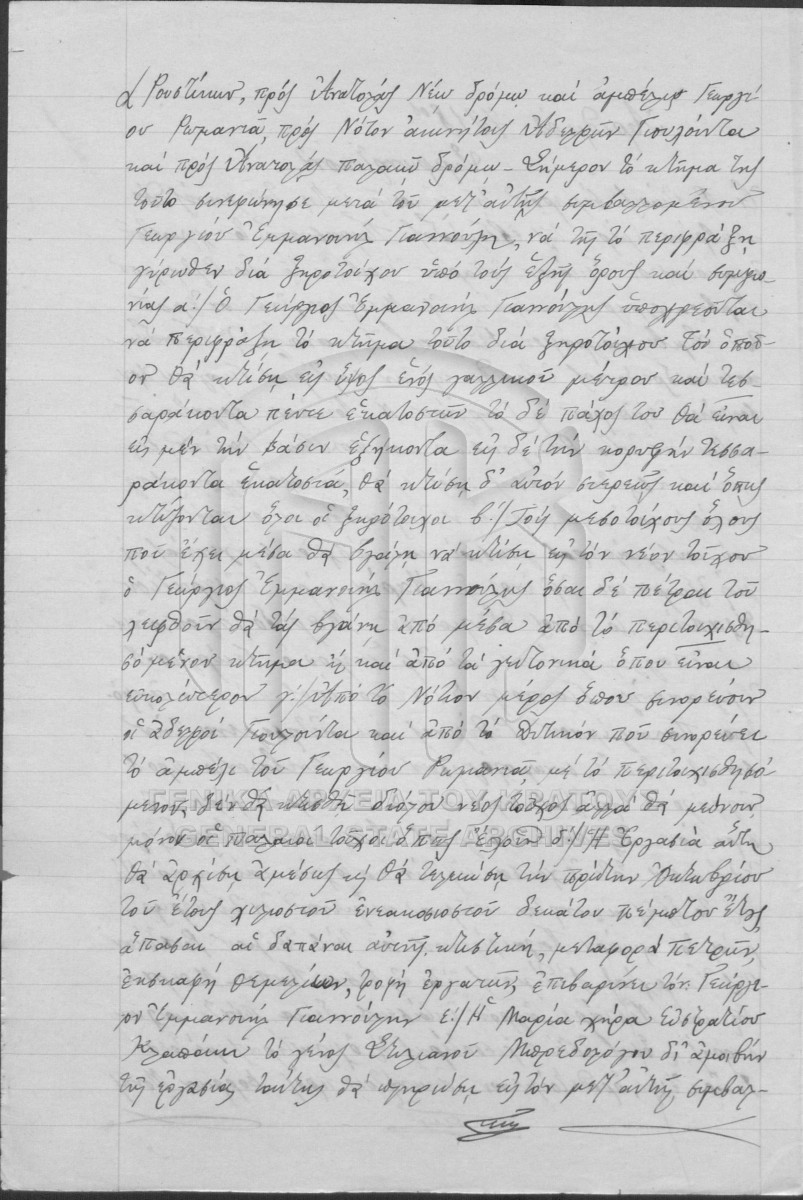 Ρουστίκων, πρός Ἀνατολάς Νέω δρόμω καί ἀμπέλω Γεωργί
ου Ρωμανιᾶ, πρός Νότον ἀκινήτοις Ἀδελφῶν Γιουλούντα
καί πρός Ἀνατολάς παλαιῶ δρόμω - Σήμερον τό κτῆμα της
τοῦτο συνεφώνησε μετά τοῦ μετ' αὐτῆς συμβαλλομένου
Γεωργίου Ἐμμανουήλ Γιαννούλη, νά τῆς τό περιφράξη
γύρωθεν διά ξηροτοίχου ὑπό τούς ἑξῆς ὅρους καί συμφω-
νίας α:/ Ὁ Γεώργιος Ἐμμανουήλ Γιαννούλης ὑποχρεοῦται
νά περιφράξη τό κτῆμα τοῦτο διά ξηροτοίχου τόν ὁποῖ-
ον θά κτίση εἰς ὕψος ἑνός γαλλικοῦ μέτρου καί τεσ-
σαράκοντα πέντε ἑκατοστῶν τό δέ πάχος του θά εἶναι
εἰς μέν τήν βάσιν ἑξήκοντα εἰς δέ τήν κορυφήν τεσσα-
ράκοντα ἑκατοστά, θά κτίση δ' αὐτόν στερεῶς καί ὅπως
κτίζονται ὅλοι οἱ ξηρότοιχοι β:/ Τούς μεσοτοίχους ὅλους
ποῦ ἔχει μέσα θά βγάλη νά κτίση εἰς τόν νέον τοῖχον
ὁ Γεώργιος Ἐμμανουήλ Γιαννούλης ὅσαι δέ πέτραι τοῦ
λειφθοῦν θά τάς βγάνη ἀπό μέσα ἀπό τό περιτοιχισθη-
σόμενον κτῆμα ἤ καί ἀπό τά γειτονικά ὅπου εἶναι
εὐκολώτερον γ:/ Ἀπό τό Νότιον μέρος ὅπου συνορεύουν
οἱ ἀδελφοί Γιουλούντα καί ἀπό τό Δυτικόν ποῦ συνορεύει
τό ἀμπέλι τοῦ Γεωργίου Ρωμανιᾶ μέ τό περιτοιχισθησό
μενον δέν θά κτισθῆ διόλου νέος τοῖχος ἀλλά θά μείνουν
μόνον οἱ παλαιοί τοῖχοι ὅπως ἔχουν δ:/ Ἡ Ἐργασία αὕτη
θά ἀρχίση ἀμέσως καί θά τελειώση τήν πρώτην Ὀκτωβρίου
τοῦ ἔτους χιλιοστοῦ ἐνεακοσιοστοῦ δεκάτου πέμπτου ἔτους
ἅπασαι αἱ δαπάναι αὐτῆς, κτιστική, μεταφορά πετρῶν,
ἐκσκαφή θεμελίων, τροφή ἐργατῶν, ἐπιβαρύνει τόν Γεώργι-
ον Ἐμμανουήλ Γιαννούλην ε:/ Ἡ Μαρία χήρα Εὐστρατίου
Κλαπάκη τό γένος Στυλιανοῦ Μπρεδολόγου δι' ἀμοιβήν
τῆς ἐργασίας ταύτης θά πληρώση εἰς τόν μετ' αὐτῆς συμβαλ-
ΓΕΝΙΚΑ ΑΡΧΕΙΑ ΤΟΥ ΚΡΑΤΟΥΣ
GENERAL STATE ARCHIVES